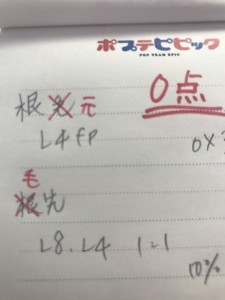 ポプテピピック
POP TEAM EPIC
0点
根毛元
L4fp
0x
毛
根先
L8.L4 1:1
10%